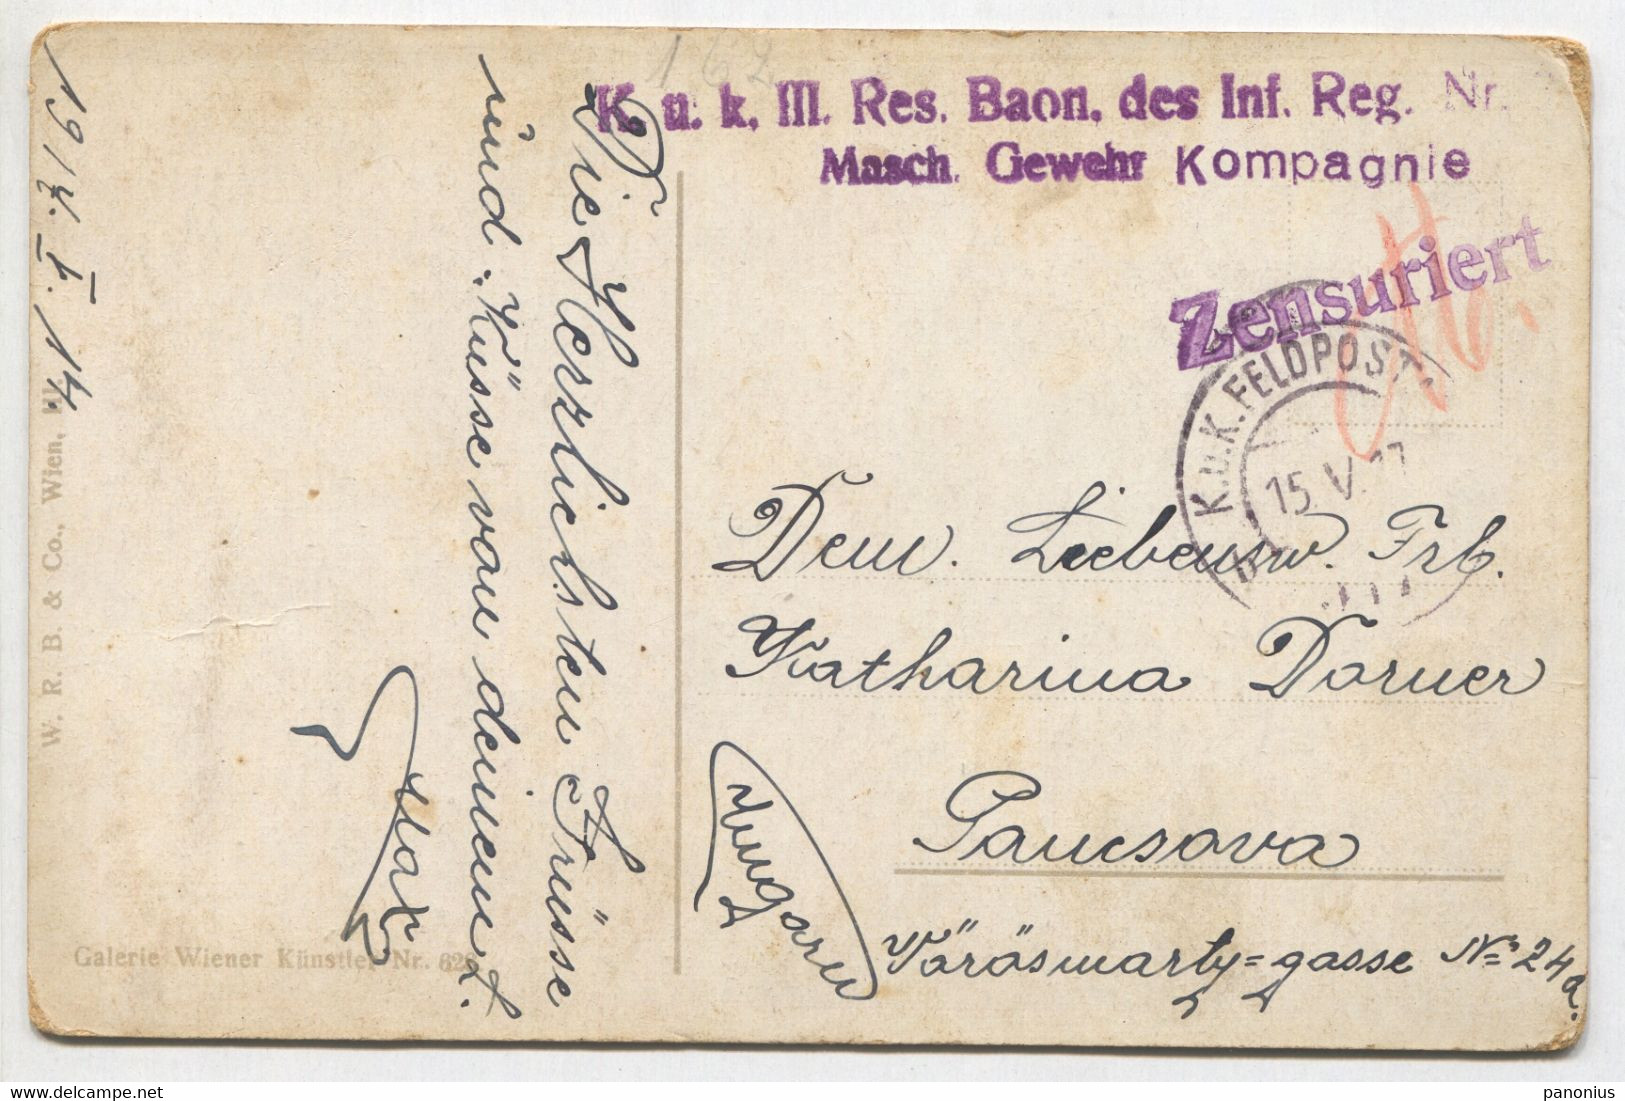 162
K. u. k. III. Res. Baon. des Inf. Reg. Nr.
Masch. Gewehr Kompagnie
Zensuriert
K.U.K. FELDPOST
15 V. 17
Dem. Liebensw. Frl.
Katharina Dorner
Pancsova
Vörösmarty=gasse No 24a.
Hungarn
Die Herzlichsten Grüsse
und Küsse von deinem
Max
W. R. B. & Co., Wien, III.
Galerie Wiener Künstler Nr. 62
panonius